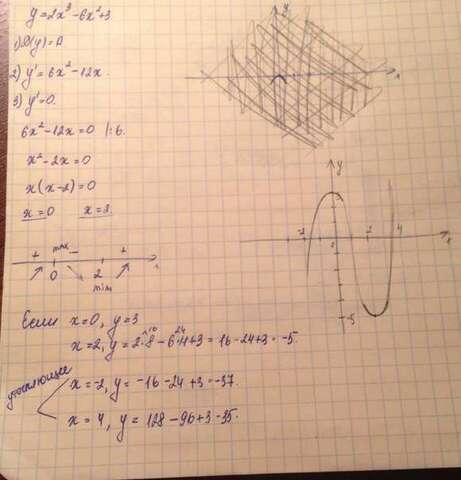 y=2x³-6x²+3
1) D(y)=R
2) y'=6x²-12x
3) y'=0
6x²-12x=0 |:6
x²-2x=0
x(x-2)=0
x=0 x=3
+ max - +
0 2 x
min
Если x=0, y=3
x=2, y=2·8-6·4+3=16-24+3=-5.
16 24
уточняющие
x=-2, y=-16-24+3=-37.
x=4, y=128-96+3=35.
y
x
y
3
-2 0 2 4 x
-5